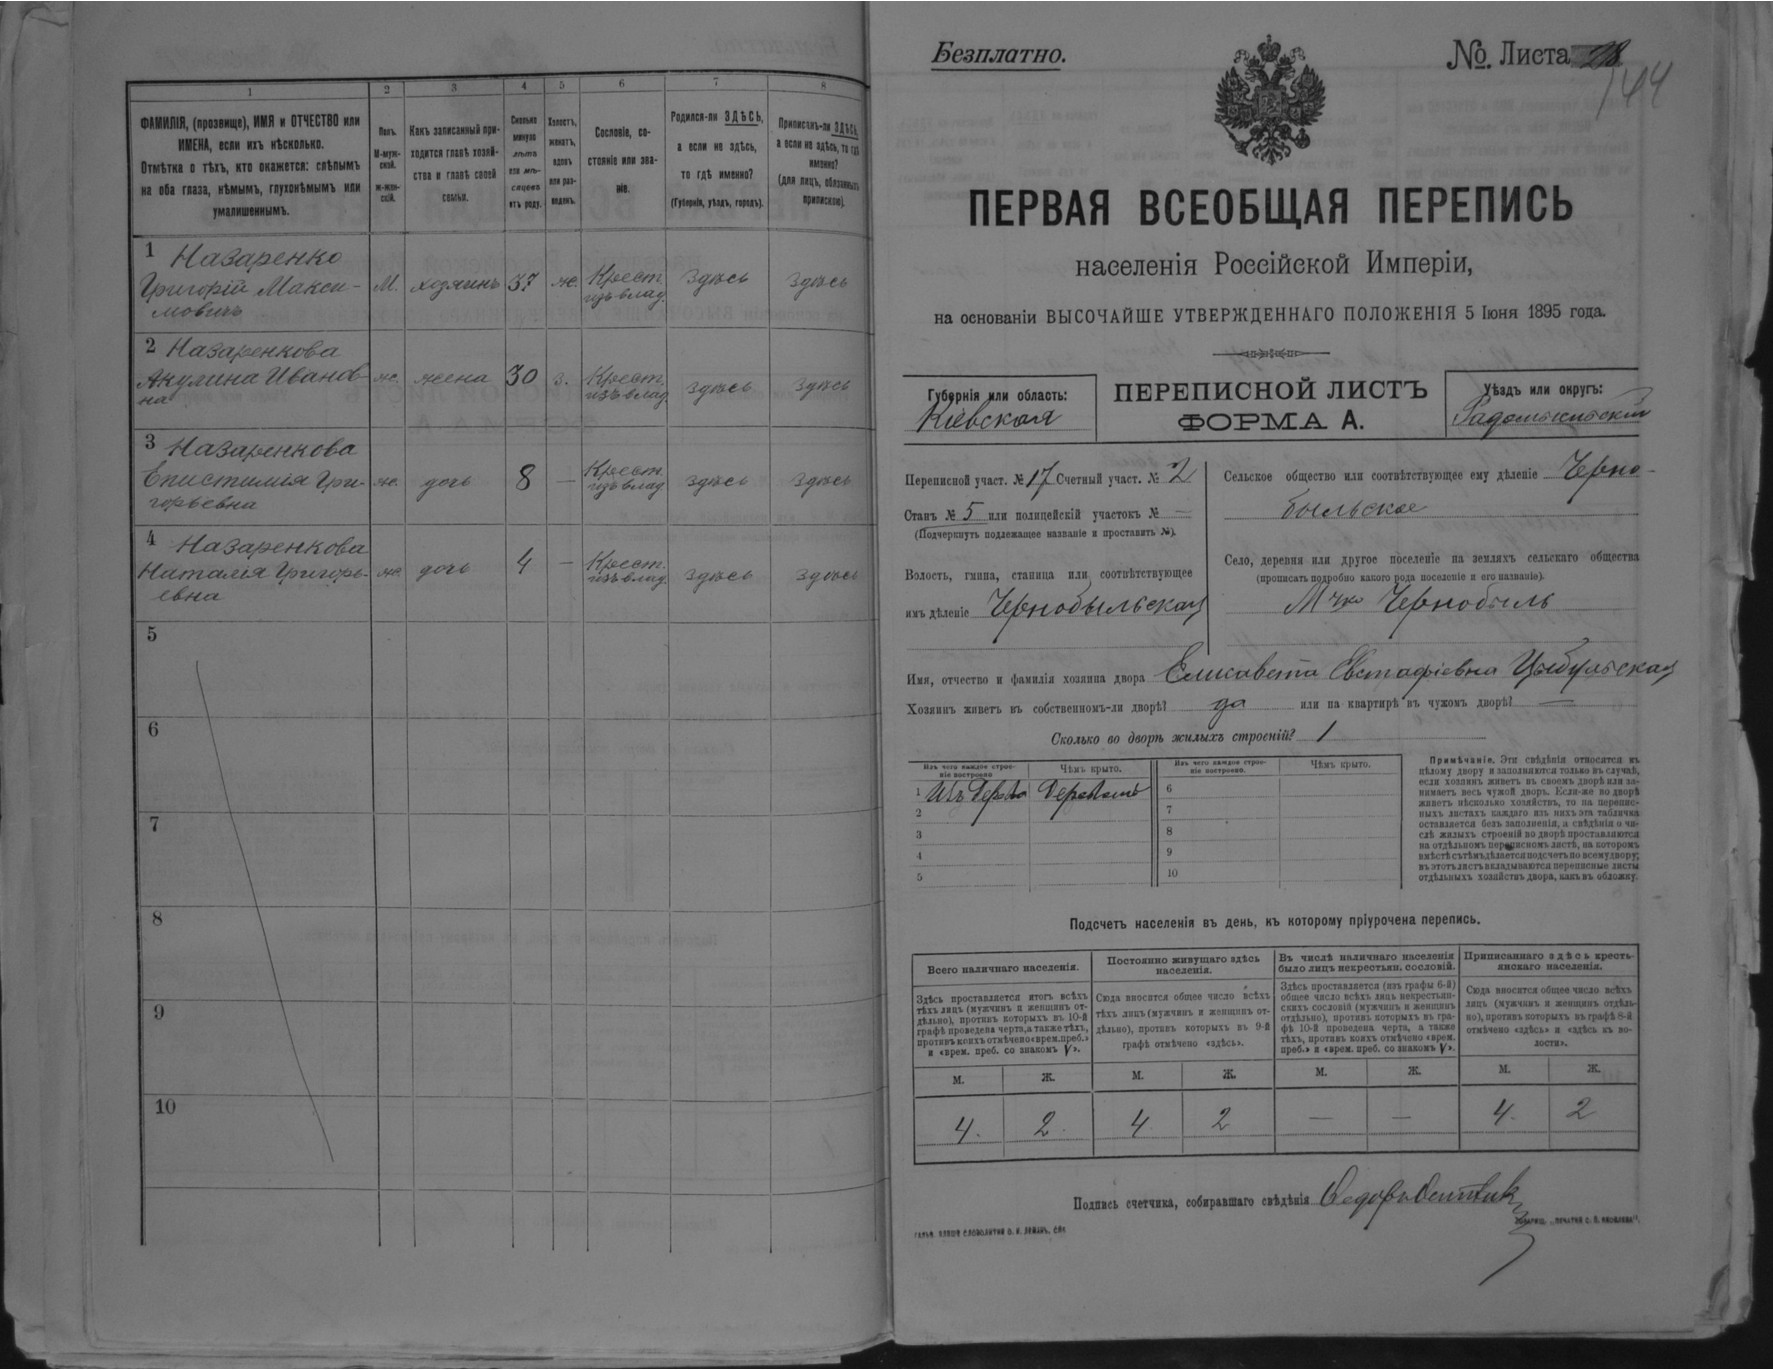 1 2 3 4 5 6 7 8
ФАМИЛІЯ, (прозвище), ИМЯ и ОТЧЕСТВО или
ИМЕНА, если ихъ нѣсколько.
Отмѣтка о тѣхъ, кто окажется: слѣпымъ
на оба глаза, нѣмымъ, глухонѣмымъ или
умалишеннымъ.
Полъ.
М-муж-
ской.
ж-жен-
скій.
Какъ записанный при-
ходится главѣ хозяй-
ства и главѣ своей
семьи.
Сколько
минуло
лѣтъ
или мѣ-
сяцевъ
отъ роду.
Холостъ,
женатъ,
вдовъ
или раз-
веденъ.
Сословіе, со-
стояніе или зва-
ніе.
Родился-ли ЗДѢСЬ,
а если не здѣсь,
то гдѣ именно?
(Губернія, уѣздъ, городъ).
Приписанъ-ли ЗДѢСЬ,
а если не здѣсь, то гдѣ
именно?
(для лицъ, обязанныхъ
припискою).
1 Назаренко
Григорій Макси-
мовичъ
М. хозяинъ 37 ж. Крест.
изъ влад. здѣсь здѣсь
2 Назаренкова
Акулина Иванов-
на
ж. жена 30 з. Крест.
изъ влад. здѣсь здѣсь
3 Назаренкова
Епистимія Гри-
горьевна
ж. дочь 8 — Крест.
изъ влад здѣсь здѣсь
4 Назаренкова
Наталія Григорь-
евна
ж. дочь 4 — Крест.
изъ влад. здѣсь здѣсь
5
6
7
8
9
10
Безплатно.
№. Листа 28
144
ПЕРВАЯ ВСЕОБЩАЯ ПЕРЕПИСЬ
населенія Россійской Имперіи,
на основаніи ВЫСОЧАЙШЕ УТВЕРЖДЕННАГО ПОЛОЖЕНІЯ 5 Іюня 1895 года.
Губернія или область:
Кіевская
ПЕРЕПИСНОЙ ЛИСТЪ
ФОРМА А.
Уѣздъ или округъ:
Радомысльскій
Переписной участ. № 17 Счетный участ. № 2
Станъ № 5 или полицейскій участокъ № —
(Подчеркнуть подлежащее названіе и проставить №).
Волость, гмина, станица или соотвѣтствующее
имъ дѣленіе Чернобыльская
Сельское общество или соотвѣтствующее ему дѣленіе Черно-
быльское
Село, деревня или другое поселеніе на земляхъ сельскаго общества
(прописать подробно какого рода поселеніе и его названіе).
Мчко Чернобыль
Имя, отчество и фамилія хозяина двора Елисавета Евстафіевна Цыбульская
Хозяинъ живетъ въ собственномъ-ли дворѣ? да или на квартирѣ въ чужомъ дворѣ? —
Сколько во дворѣ жилыхъ строеній? 1
Изъ чего каждое строе-
ніе построено
Чѣмъ крыто.
Изъ чего каждое строе-
ніе построено.
Чѣмъ крыто.
1 Изъ дерева деревомъ
2
3
4
5
6
7
8
9
10
Примѣчаніе. Эти свѣдѣнія относятся къ
цѣлому двору и заполняются только въ случаѣ,
если хозяинъ живетъ въ своемъ дворѣ или за-
нимаетъ весь чужой дворъ. Если-же во дворѣ
живетъ нѣсколько хозяйствъ, то на перепис-
ныхъ листахъ каждаго изъ нихъ эта табличка
оставляется безъ заполненія, а свѣдѣнія о чи-
слѣ жилыхъ строеній во дворѣ проставляются
на отдѣльномъ переписномъ листѣ, на которомъ
вмѣстѣ съ тѣмъ дѣлается подсчетъ по всему двору;
въ этотъ листъ вкладываются переписные листы
отдѣльныхъ хозяйствъ двора, какъ въ обложку.
Подсчетъ населенія въ день, къ которому пріурочена перепись.
Всего наличнаго населенія.
Постоянно живущаго здѣсь
населенія.
Въ числѣ наличнаго населенія
было лицъ некрестьян. сословій.
Приписаннаго здѣсь кресть-
янскаго населенія.
Здѣсь проставляется итогъ всѣхъ
тѣхъ лицъ (мужчинъ и женщинъ от-
дѣльно), противъ которыхъ въ 10-й
графѣ проведена черта, а также тѣхъ,
противъ коихъ отмѣчено «врем. преб.»
и «врем. преб. со знакомъ V».
Сюда вносится общее число всѣхъ
тѣхъ лицъ (мужчинъ и женщинъ от-
дѣльно), противъ которыхъ въ 9-й
графѣ отмѣчено «здѣсь».
Здѣсь проставляется (изъ графы 6-й)
общее число всѣхъ лицъ некрестьян-
скихъ сословій (мужчинъ и женщинъ
отдѣльно), противъ которыхъ въ гра-
фѣ 10-й проведена черта, а также
тѣхъ, противъ коихъ отмѣчено «врем.
преб.» и «врем. преб. со знакомъ V».
Сюда вносится общее число всѣхъ
лицъ (мужчинъ и женщинъ отдѣль-
но), противъ которыхъ въ графѣ 8-й
отмѣчено «здѣсь» и «здѣсь въ во-
лости».
М. Ж. М. Ж. М. Ж. М. Ж.
4. 2. 4 2 — — 4. 2
Подпись счетчика, собиравшаго свѣдѣнія Федоръ